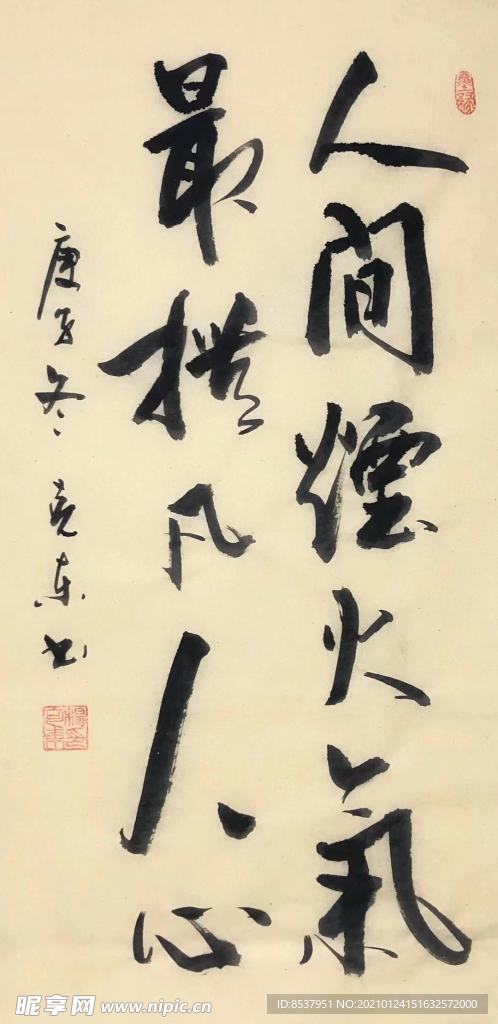 人間煙火氣
最撫凡人心
庚子冬 克東书
昵享网 www.nipic.cn
ID:8537951 NO:20210124151632572000